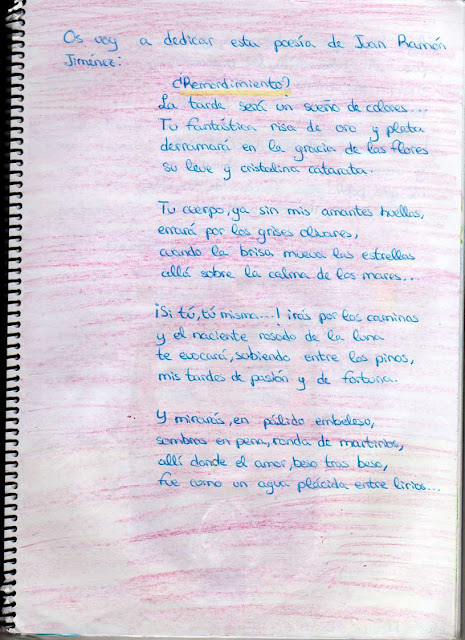 Os voy a dedicar esta poesía de Juan Ramón
Jiménez:
¿Remordimiento?
La tarde será un sueño de colores...
Tu fantástica risa de oro y plata
derramará en la gracia de las flores
su leve y cristalina catarata.
Tu cuerpo, ya sin mis amantes huellas,
errará por los grises olivares,
cuando la brisa mueva las estrellas
allá sobre la calma de los mares...
¡Si tú, tú misma...! irás por los caminos
y el naciente rosado de la luna
te evocará, subiendo entre los pinos,
mis tardes de pasión y de fortuna.
Y mirarás, en pálido embeleso,
sombras en pena, ronda de martirios,
allí donde el amor, beso tras beso,
fue como un agua plácida entre lirios...